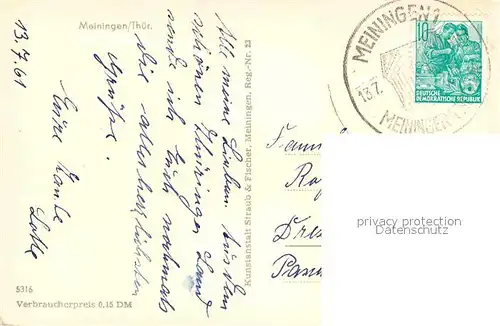 Meiningen/Thür.
13.7.61
Alle meine Lieben. Aus dem
schönen Thüringer Land
sende ich Euch nochmals
die allerherzlichsten
Grüße.
Eure Tante
Lotte
5316
Verbraucherpreis 0,15 DM
Kunstanstalt Straub & Fischer, Meiningen, Reg.-Nr. 23
MEININGEN 1
13.7.
MEININGER
10
DEUTSCHE
DEMOKRATISCHE REPUBLIK
Dres
privacy protection